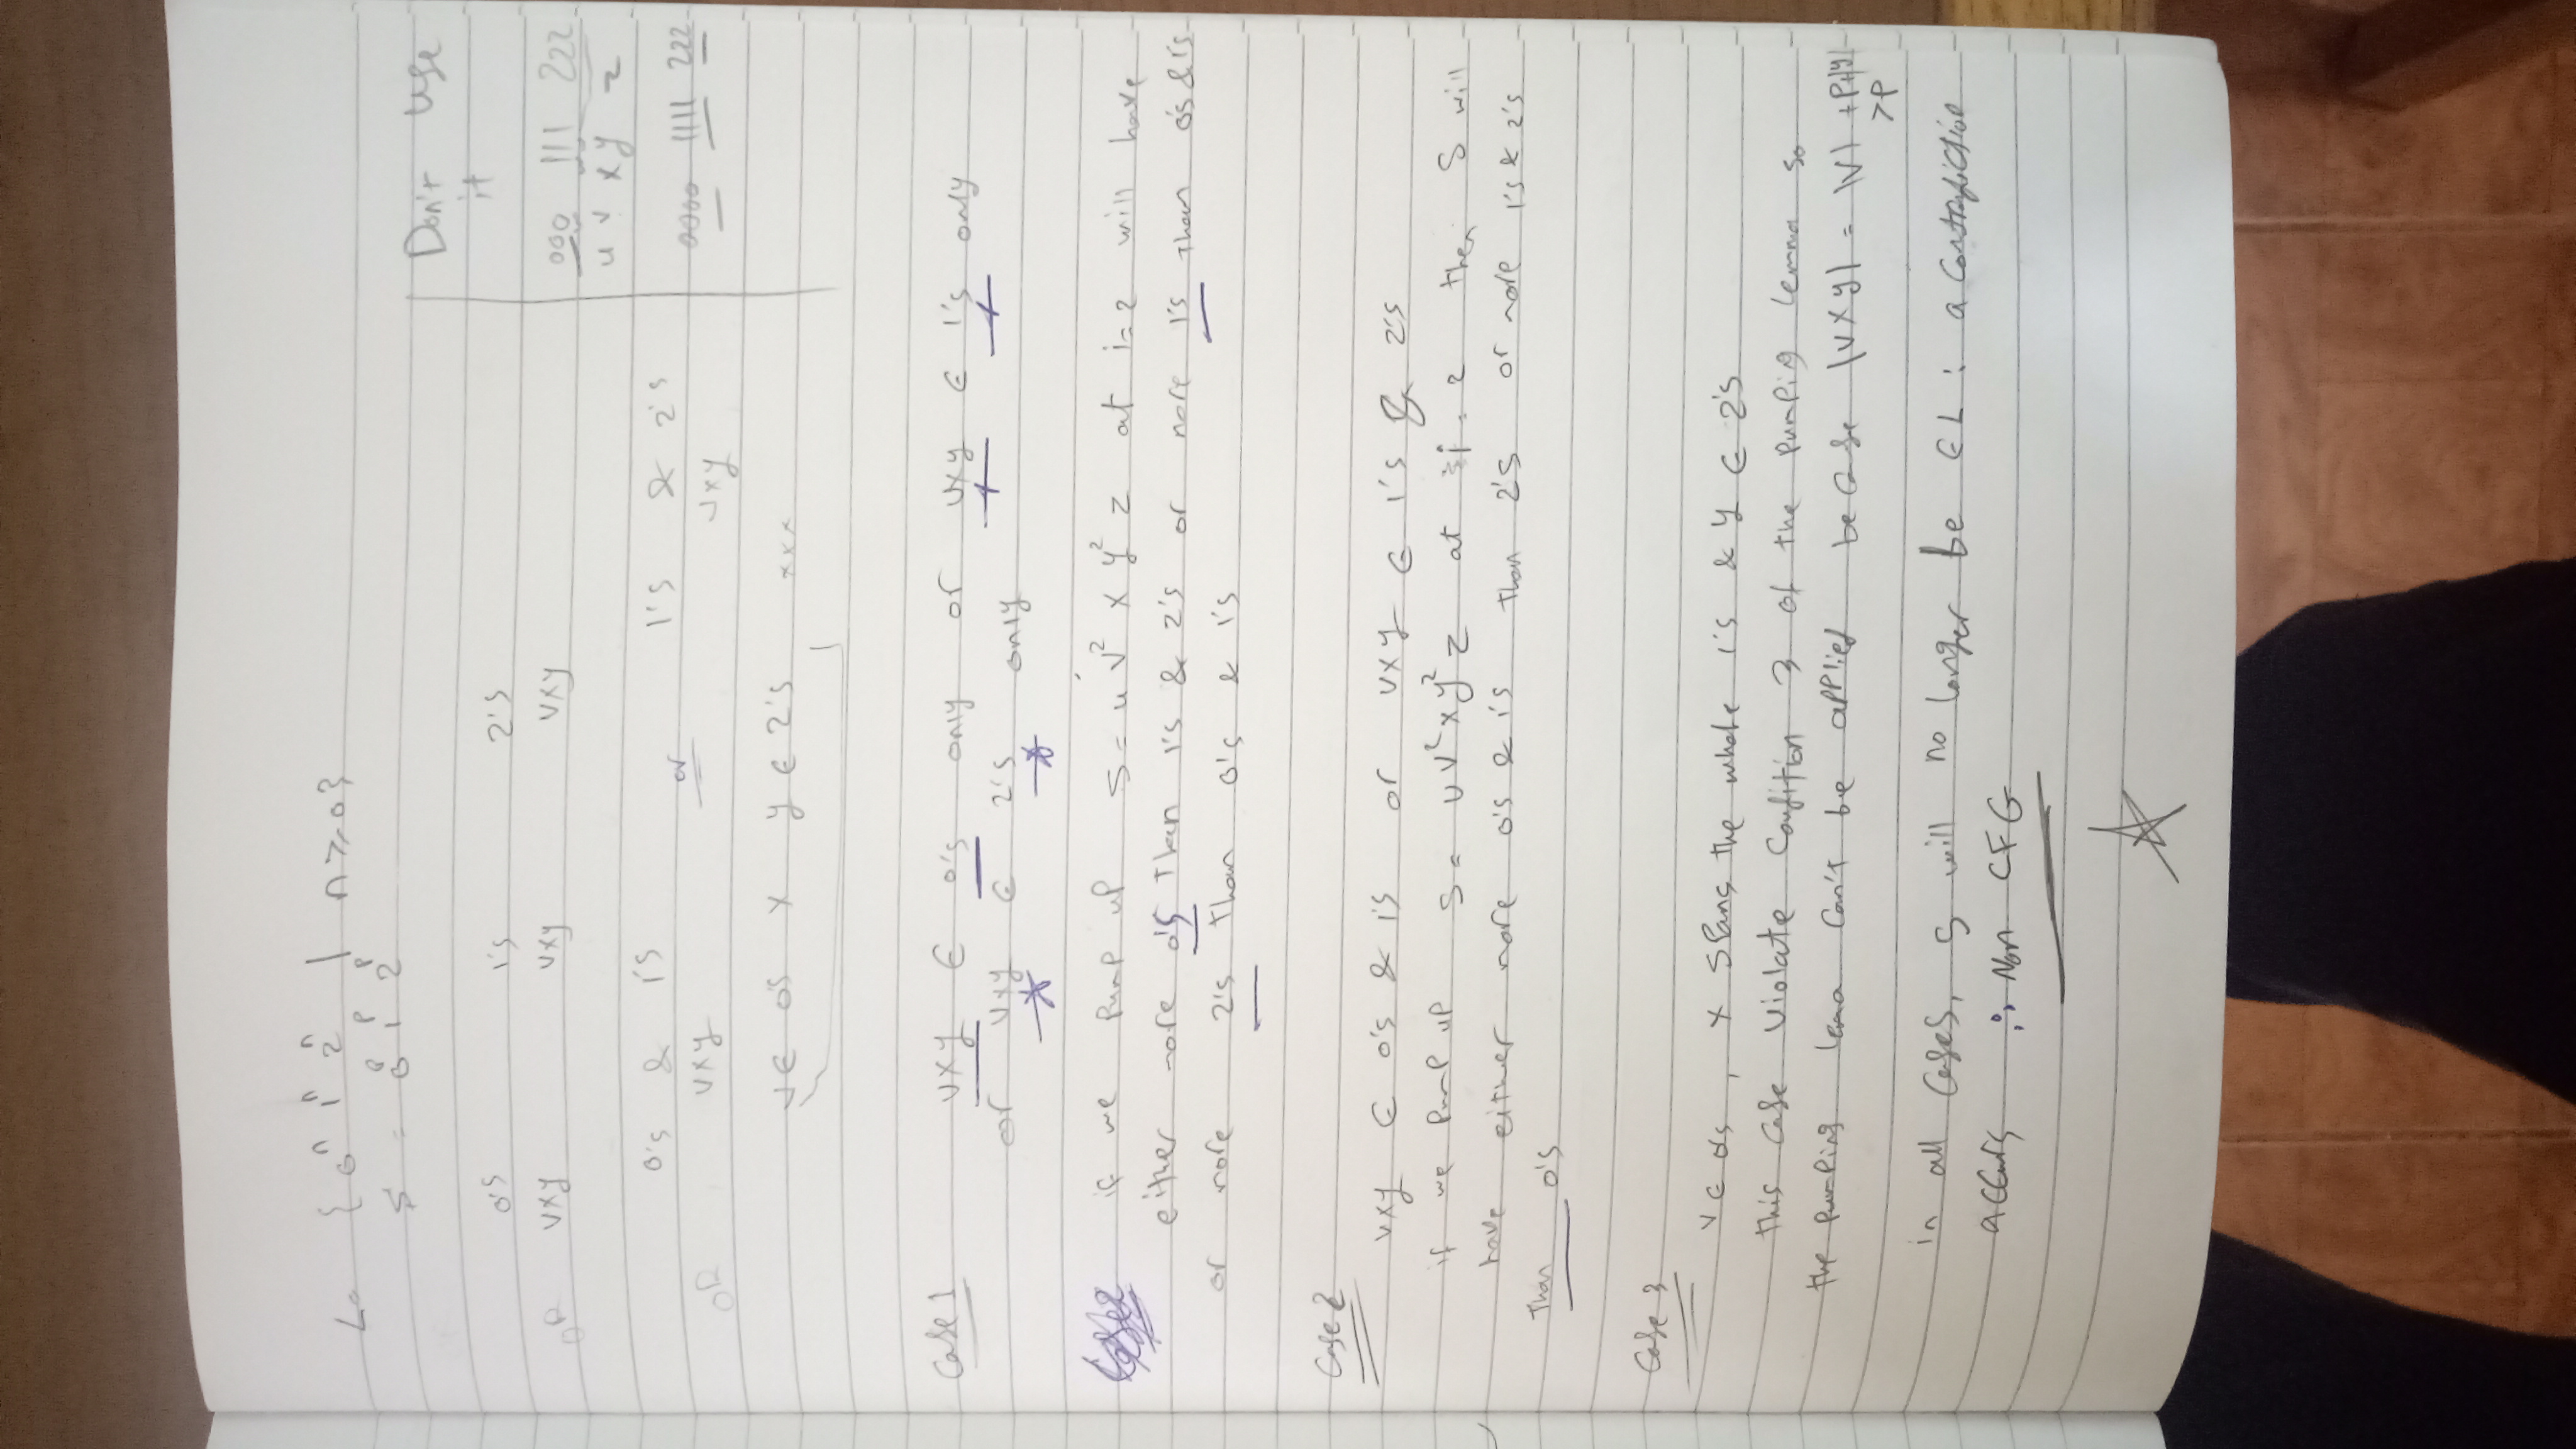 L= { 0ⁿ 1ⁿ 2ⁿ | n ≥ 0 }
S = 0ᵖ 1ᵖ 2ᵖ
0's 1's 2's
OR vxy vxy vxy
0's & 1's or 1's & 2's
OR vxy vxy
v ∈ 0's x y ∈ 2's xxx
Don't use
it
000 111 222
u v x y z
0000 1111 222
Case 1 vxy ∈ 0's only or vxy ∈ 1's only
or vxy ∈ 2's only
if we pump up S = u v² x y² z at i=2 will have
either more 0's Than 1's & 2's or more 1's Than 0's & 1's
or more 2's Than 0's & 1's
Case 2
vxy ∈ 0's & 1's or vxy ∈ 1's & 2's
if we pump up S = u v² x y² z at i = 2 then S will
have either more 0's & 1's than 2's or more 1's & 2's
Than 0's
Case 3
v ∈ 0's , x spans the whole 1's & y ∈ 2's
this case violate Condition 3 of the pumping lemma so
the pumping lema can't be applied becase |vxy| = |v| + p + |y|
> p
in all cases, S will no longer be ∈ L : a contradiction
accurs ∴ Non CFG